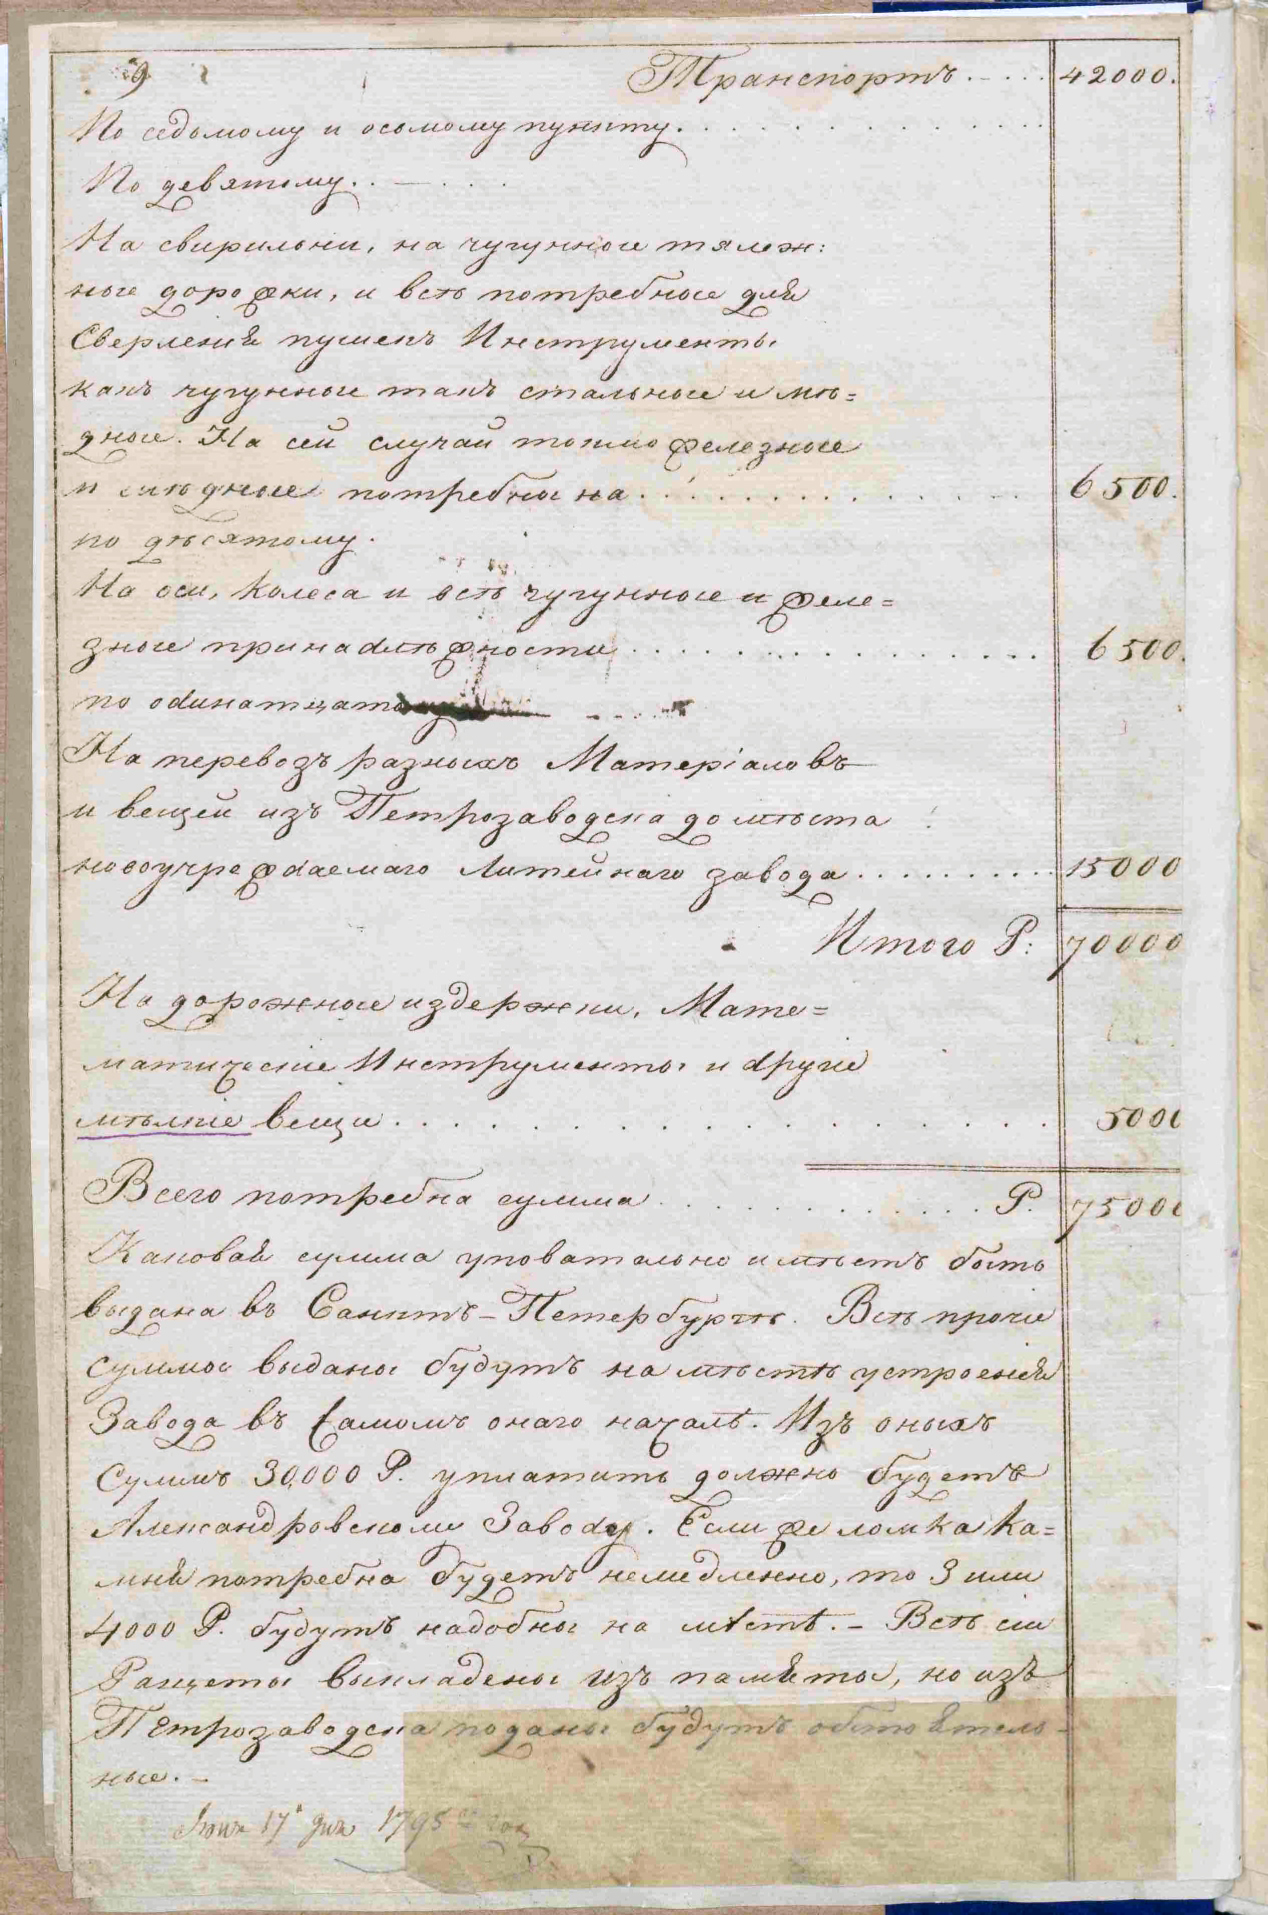 9 Транспортъ. . . . 42000.
По седьмому и осьмому пункту. . . . . . . . . . . .
По девятому. . — . . .
На свирильни, на чугунные тялеж:
ные дорожки, и всѣ потребные для
Сверленія пушекъ Инструменты
какъ чугунные такъ стальные и мѣ=
дные. На сей случай токмо железные
и мѣдные потребны на . . . . . . . . . . . . 6500.
по дѣсятому.
На оси, колеса и всѣ чугунные и желе=
зные принадлѣжности . . . . . . . . . . . . 6500.
по одинатцато
На перевозъ разныхъ Матеріаловъ
и вещей изъ Петрозаводска до мѣста
новоучреждаемаго Литейнаго завода . . . . . . . . . 15000
Итого Р: 70000
На дорожные издержки, Мате=
матическіе Инструменты и другіе
мѣлкіе вещи . . . . . . . . . . . . . . . . 5000
Всего потребна сумма . . . . . . . . . . . . Р. 75000
Каковая сумма уповательно имѣетъ быть
выдана въ Санктъ-Петербургѣ. Всѣ прочіе
суммы выданы будутъ на мѣстѣ устроенія
Завода въ самомъ онаго началѣ. Изъ оныхъ
Суммъ 30,000 Р. уплатить должно будетъ
Александровскому Заводу. Если же ломка ка=
мня потребна будетъ немедленно, то 3 или
4000 Р. будутъ надобны на мѣстѣ. – Всѣ сіи
Ращеты выкладены изъ памяти, но изъ
Петрозаводска поданы будутъ обстоятель-
ные. –
17 1795